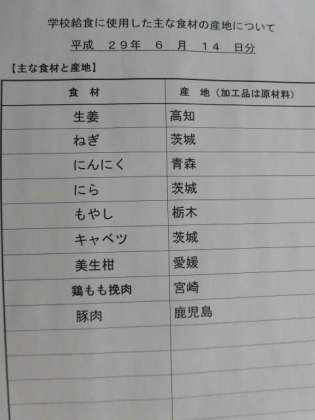 学校給食に使用した主な食材の産地について
平成 29年 6 月 14 日分
【主な食材と産地】
食 材 産 地（加工品は原材料）
生姜 高知
ねぎ 茨城
にんにく 青森
にら 茨城
もやし 栃木
キャベツ 茨城
美生柑 愛媛
鶏もも挽肉 宮崎
豚肉 鹿児島